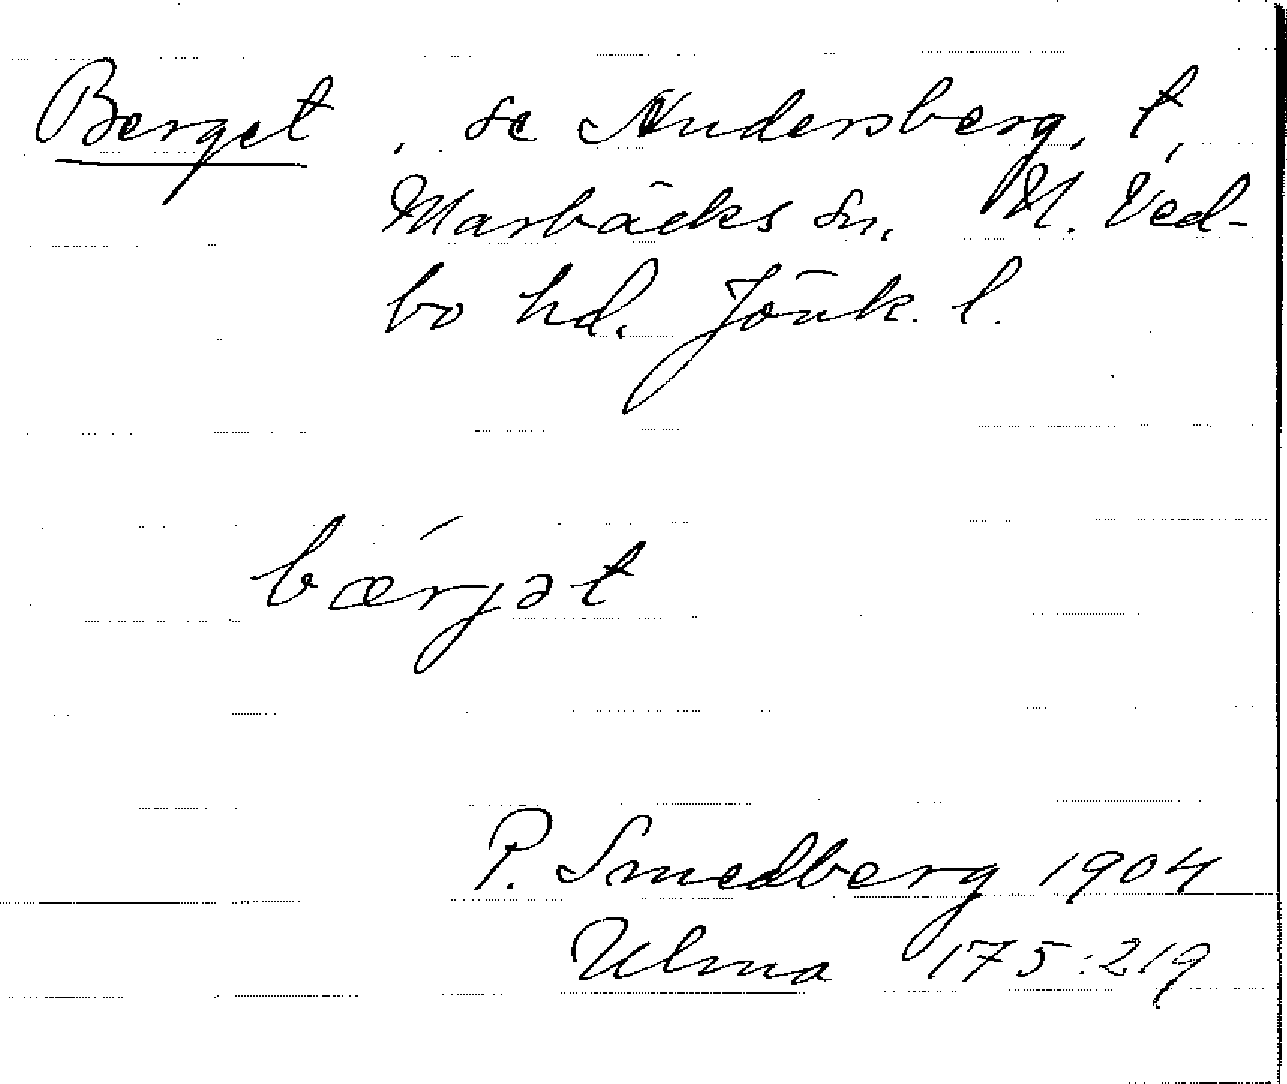 Berget, se Andersberg, t,
Marbäcks sn. N. Ved-
bo hd. Jönk. l.
bærjət
P. Smedberg 1904
Ulma 175:219